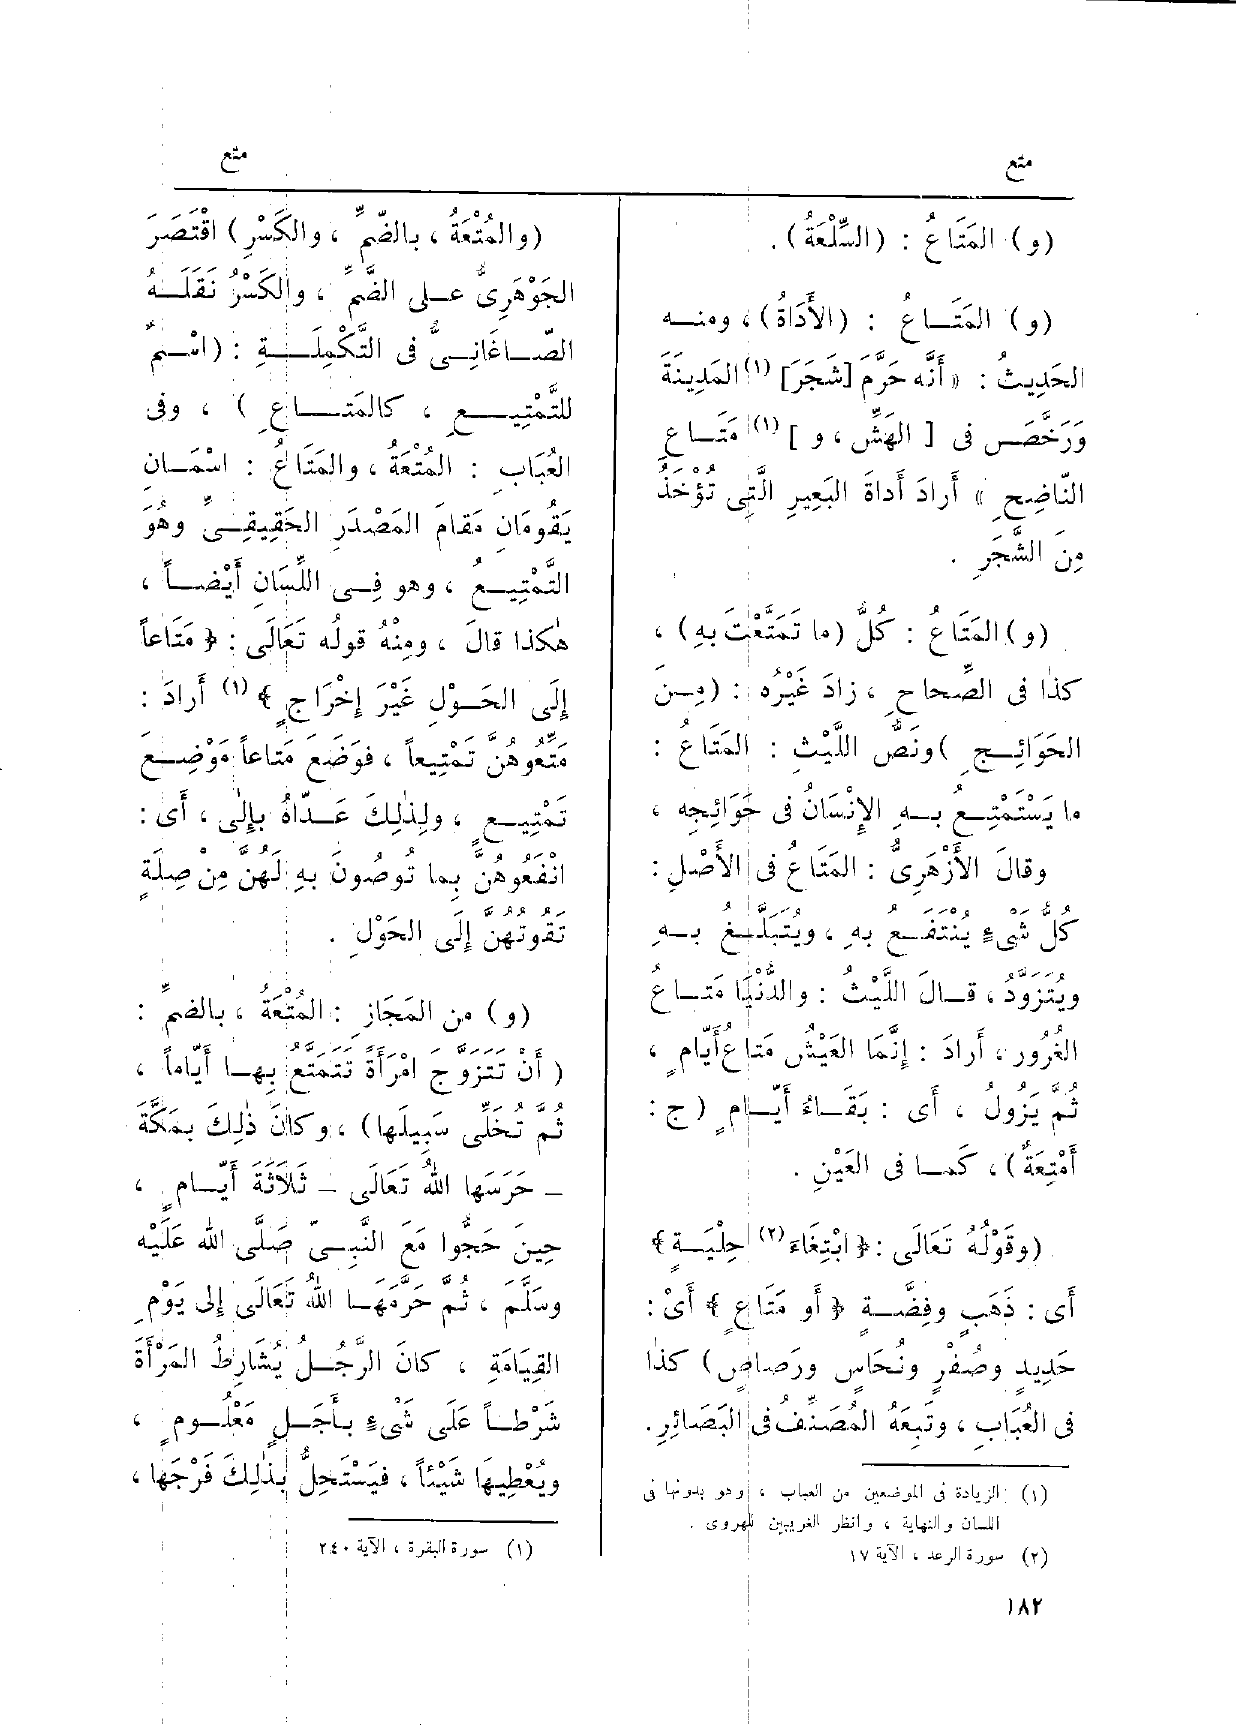 متع
متع
(و) المَتَاعُ : (السِّلْعَةُ) .
(و) المَتَـاعُ : (الأَدَاةُ) ، ومنـه
الحَدِيثُ : « أَنَّه حَرَّمَ [شَجَرَ] (١) المَدِينَةَ
وَرَخَّصَ فى [ الهَشِّ ، و ] (١) مَتَـاعِ
النّاضِحِ » أَرادَ أَداةَ البَعِيرِ الَّتِى تُؤْخَذُ
مِنَ الشَّجَرِ .
(و) المَتَاعُ : كُلُّ (ما تَمَتَّعْتَ بِهِ) ،
كذا فى الصِّحاحِ ، زادَ غَيْرُه : (مِـنَ
الحَوَائِـجِ ) ونَصُّ اللَّيْثِ : المَتَاعُ :
ما يَسْتَمْتِـعُ بِـهِ الإِنْسَانُ فى حَوَائِجِه ،
وقالَ الأَزْهَرِىُّ : المَتَاعُ فى الأَصْلِ :
كُلُّ شَىْءٍ يُنْتَفَـعُ بِهِ ، ويُتَبَلَّـغُ بِـهِ
ويُتَزَوَّدُ ، قـالَ اللَّيْثُ : والدُّنْيَا مَتـاعُ
الغُرُورِ ، أَرادَ : إِنَّمَا العَيْشُ مَتاعُ أَيّامٍ ،
ثُمَّ يَزُولُ ، أَى : بَقَـاءُ أَيّـامٍ (ج :
أَمْتِعَةٌ) ، كَمـا فى العَيْنِ .
(وقَوْلُهُ تَعَالَى : ﴿ ابْتِغَاءَ (٢) حِلْيَـةٍ ﴾
أَى : ذَهَبٍ وفِضَّـةٍ ﴿ أَو مَتَاعٍ ﴾ أَىْ :
حَدِيدٍ وصُفْرٍ ونُحَاسٍ ورَصاصٍ) كذا
فى العُبَابِ ، وتَبِعَهُ المُصَنِّفُ فى البَصَائِرِ .
(١) الزيادة فى الموضعين من العباب ، وهو بدونها فى
اللسان والنهاية ، وانظر الغريبين للهروى .
(٢) سورة الرعد ، الآية ١٧
١٨٢
(والمُتْعَةُ ، بالضَّمِّ ، والكَسْرِ) اقْتَصَرَ
الجَوْهَرِىُّ عـلى الضَّمِّ ، والكَسْرُ نَقَلَـهُ
الصّـاغَانِـىُّ فى التَّكْمِلَـةِ : (اسْـمٌ
للتَّمْتِيـعِ ، كالمَتَـاعِ ) ، وفى
العُبَابِ : المُتْعَةُ ، والمَتَاعُ : اسْمَـانِ
يَقُومَانِ مَقامَ المَصْدَرِ الحَقِيقِـىِّ وهُوَ
التَّمْتِيـعُ ، وهو فِـى اللِّسَانِ أَيْضـاً ،
هٰكذا قالَ ، ومِنْهُ قولُه تَعَالَى : ﴿ مَتَاعاً
إِلَى الحَـوْلِ غَيْرَ إِخْرَاجٍ ﴾ (١) أَرادَ :
مَتِّعُوهُنَّ تَمْتِيعاً ، فوَضَعَ مَتاعاً مَوْضِـعَ
تَمْتِيـعٍ ، ولِذٰلِكَ عَـدّاهُ بإِلٰى ، أَى :
انْفَعُوهُنَّ بِما تُوصُونَ بِهِ لَهُنَّ مِنْ صِلَةٍ
تَقُوتُهُنَّ إِلَى الحَوْلِ .
(و) من المَجَازِ : المُتْعَةُ ، بالضمِّ :
( أَنْ تَتَزَوَّجَ امْرَأَةً تَتَمَتَّعُ بِهـا أَيّاماً ،
ثُمَّ تُخَلِّى سَبِيلَها) ، وكانَ ذٰلِكَ بِمَكَّةَ
ـ حَرَسَها اللهُ تَعَالَى ـ ثَلاثَةَ أَيّـامٍ ،
حِينَ حَجُّوا مَعَ النَّبِـىِّ صَلَّى الله عَلَيْهِ
وسَلَّم ، ثُمَّ حَرَّمَهـا اللهُ تَعَالَى إِلى يَوْمِ
القِيَامَةِ ، كانَ الرَّجُـلُ يُشَارِطُ المَرْأَةَ
شَرْطـاً عَلَى شَىْءٍ بـأَجَـلٍ مَعْلُـومٍ ،
ويُعْطِيهَا شَيْئاً ، فيَسْتَحِلُّ بِذٰلِكَ فَرْجَها ،
(١) سورة البقرة ، الآية ٢٤٠